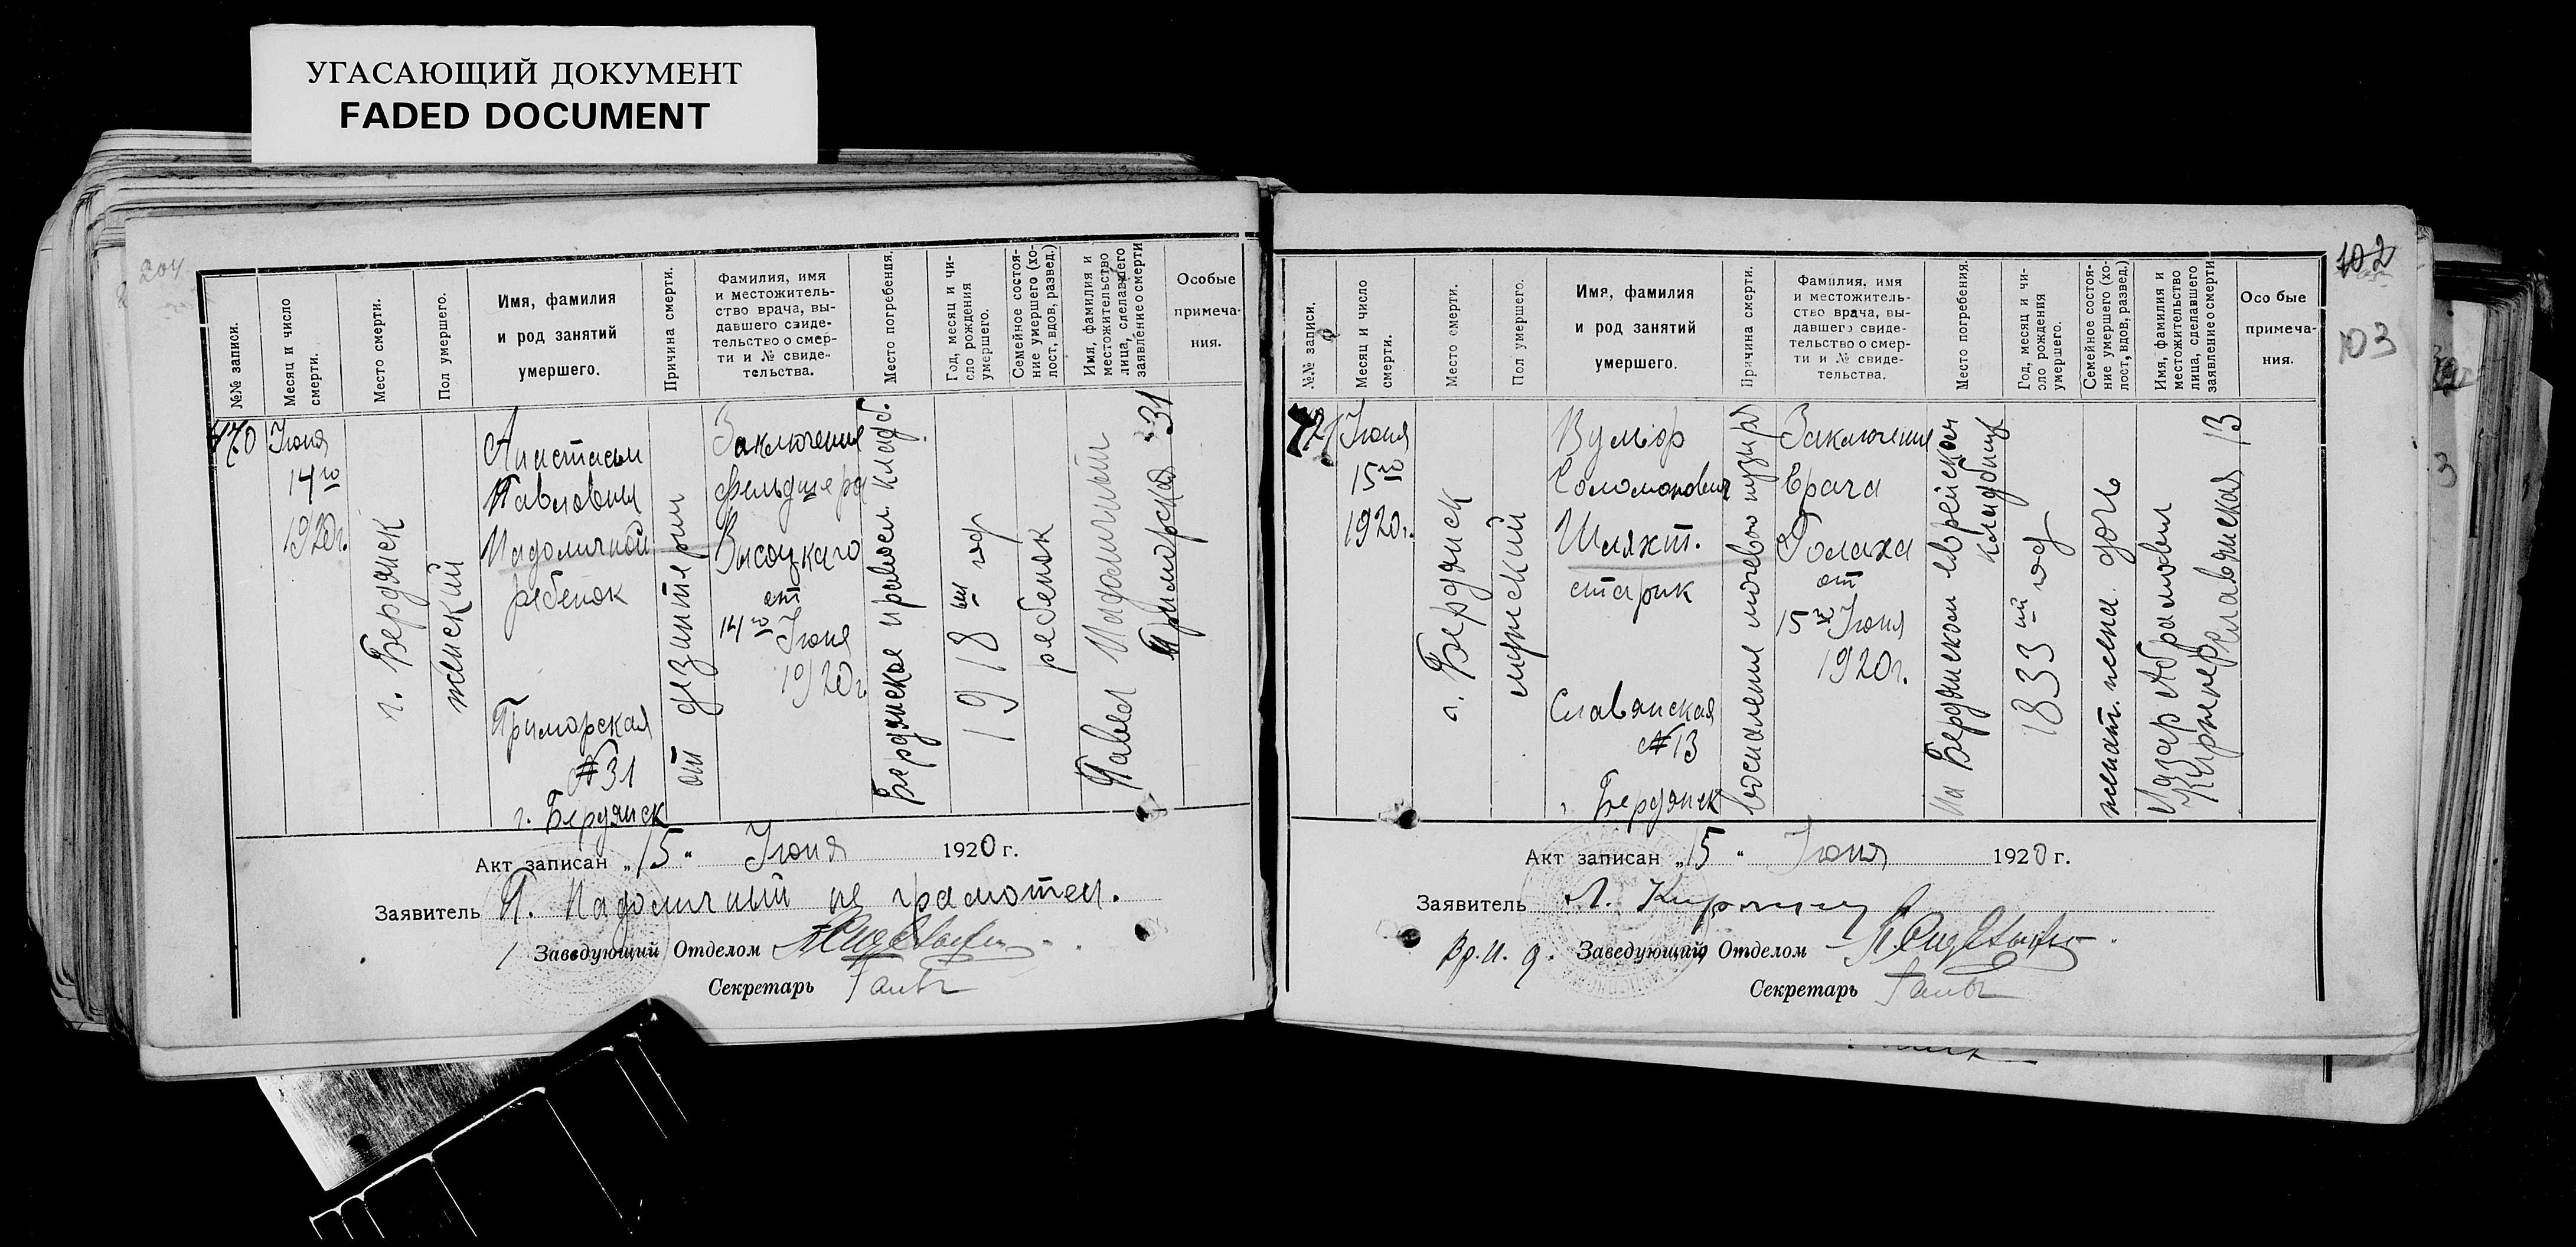 УГАСАЮЩИЙ ДОКУМЕНТ
FADED DOCUMENT
204
№№ записи.
Месяц и число
смерти.
Место смерти.
Пол умершего.
Имя, фамилия
и род занятий
умершего.
Причина смерти.
Фамилия, имя
и местожитель-
ство врача, вы-
давшего свиде-
тельство о смер-
ти и № свиде-
тельства.
Место погребения.
Год, месяц и чи-
сло рождения
умершего.
Семейное состоя-
ние умершего (хо-
лост, вдов, развед.)
Имя, фамилия и
местожительство
лица, сделавшего
заявление о смерти
Особые
примеча-
ния.
470
Июня
14го
1920г.
г. Бердянск
женский
Анастасья
Павловна
ребенок
Приморская
№ 31
г. Бердянск
от дизинтерии
Заключение
фельдшера
Высоцкаго
от
14го Июня
1920г.
Бердянское правосл. кладб.
1918 ый год
ребенок
Павел
Приморская 31
Акт записан „15“ Июня 1920 г.
Заявитель П. не грамотен.
Заведующий Отделом
Секретарь
102
103
№№ записи.
Месяц и число
смерти.
Место смерти.
Пол умершего.
Имя, фамилия
и род занятий
умершего.
Причина смерти.
Фамилия, имя
и местожитель-
ство врача, вы-
давшего свиде-
тельство о смер-
ти и № свиде-
тельства.
Место погребения.
Год, месяц и чи-
сло рождения
умершего.
Семейное состоя-
ние умершего (хо-
лост, вдов, развед.)
Имя, фамилия и
местожительство
лица, сделавшего
заявление о смерти
Особые
примеча-
ния.
471
Июня
15го
1920г.
г. Бердянск
мужский
Вульф
Соломонович
Шляхт.
старик
Славянская
№ 13
г. Бердянск
воспаление мочевого пузыря
Заключение
врача
от
15го Июня
1920г.
На Бердянском еврейском
кладбище
1833 ий год
женат. жена дочь
Лазар Абрамович
Славянская 13
Акт записан „15“ Июня 1920 г.
Заявитель Л.
Вр. И. д. Заведующий Отделом
Секретарь